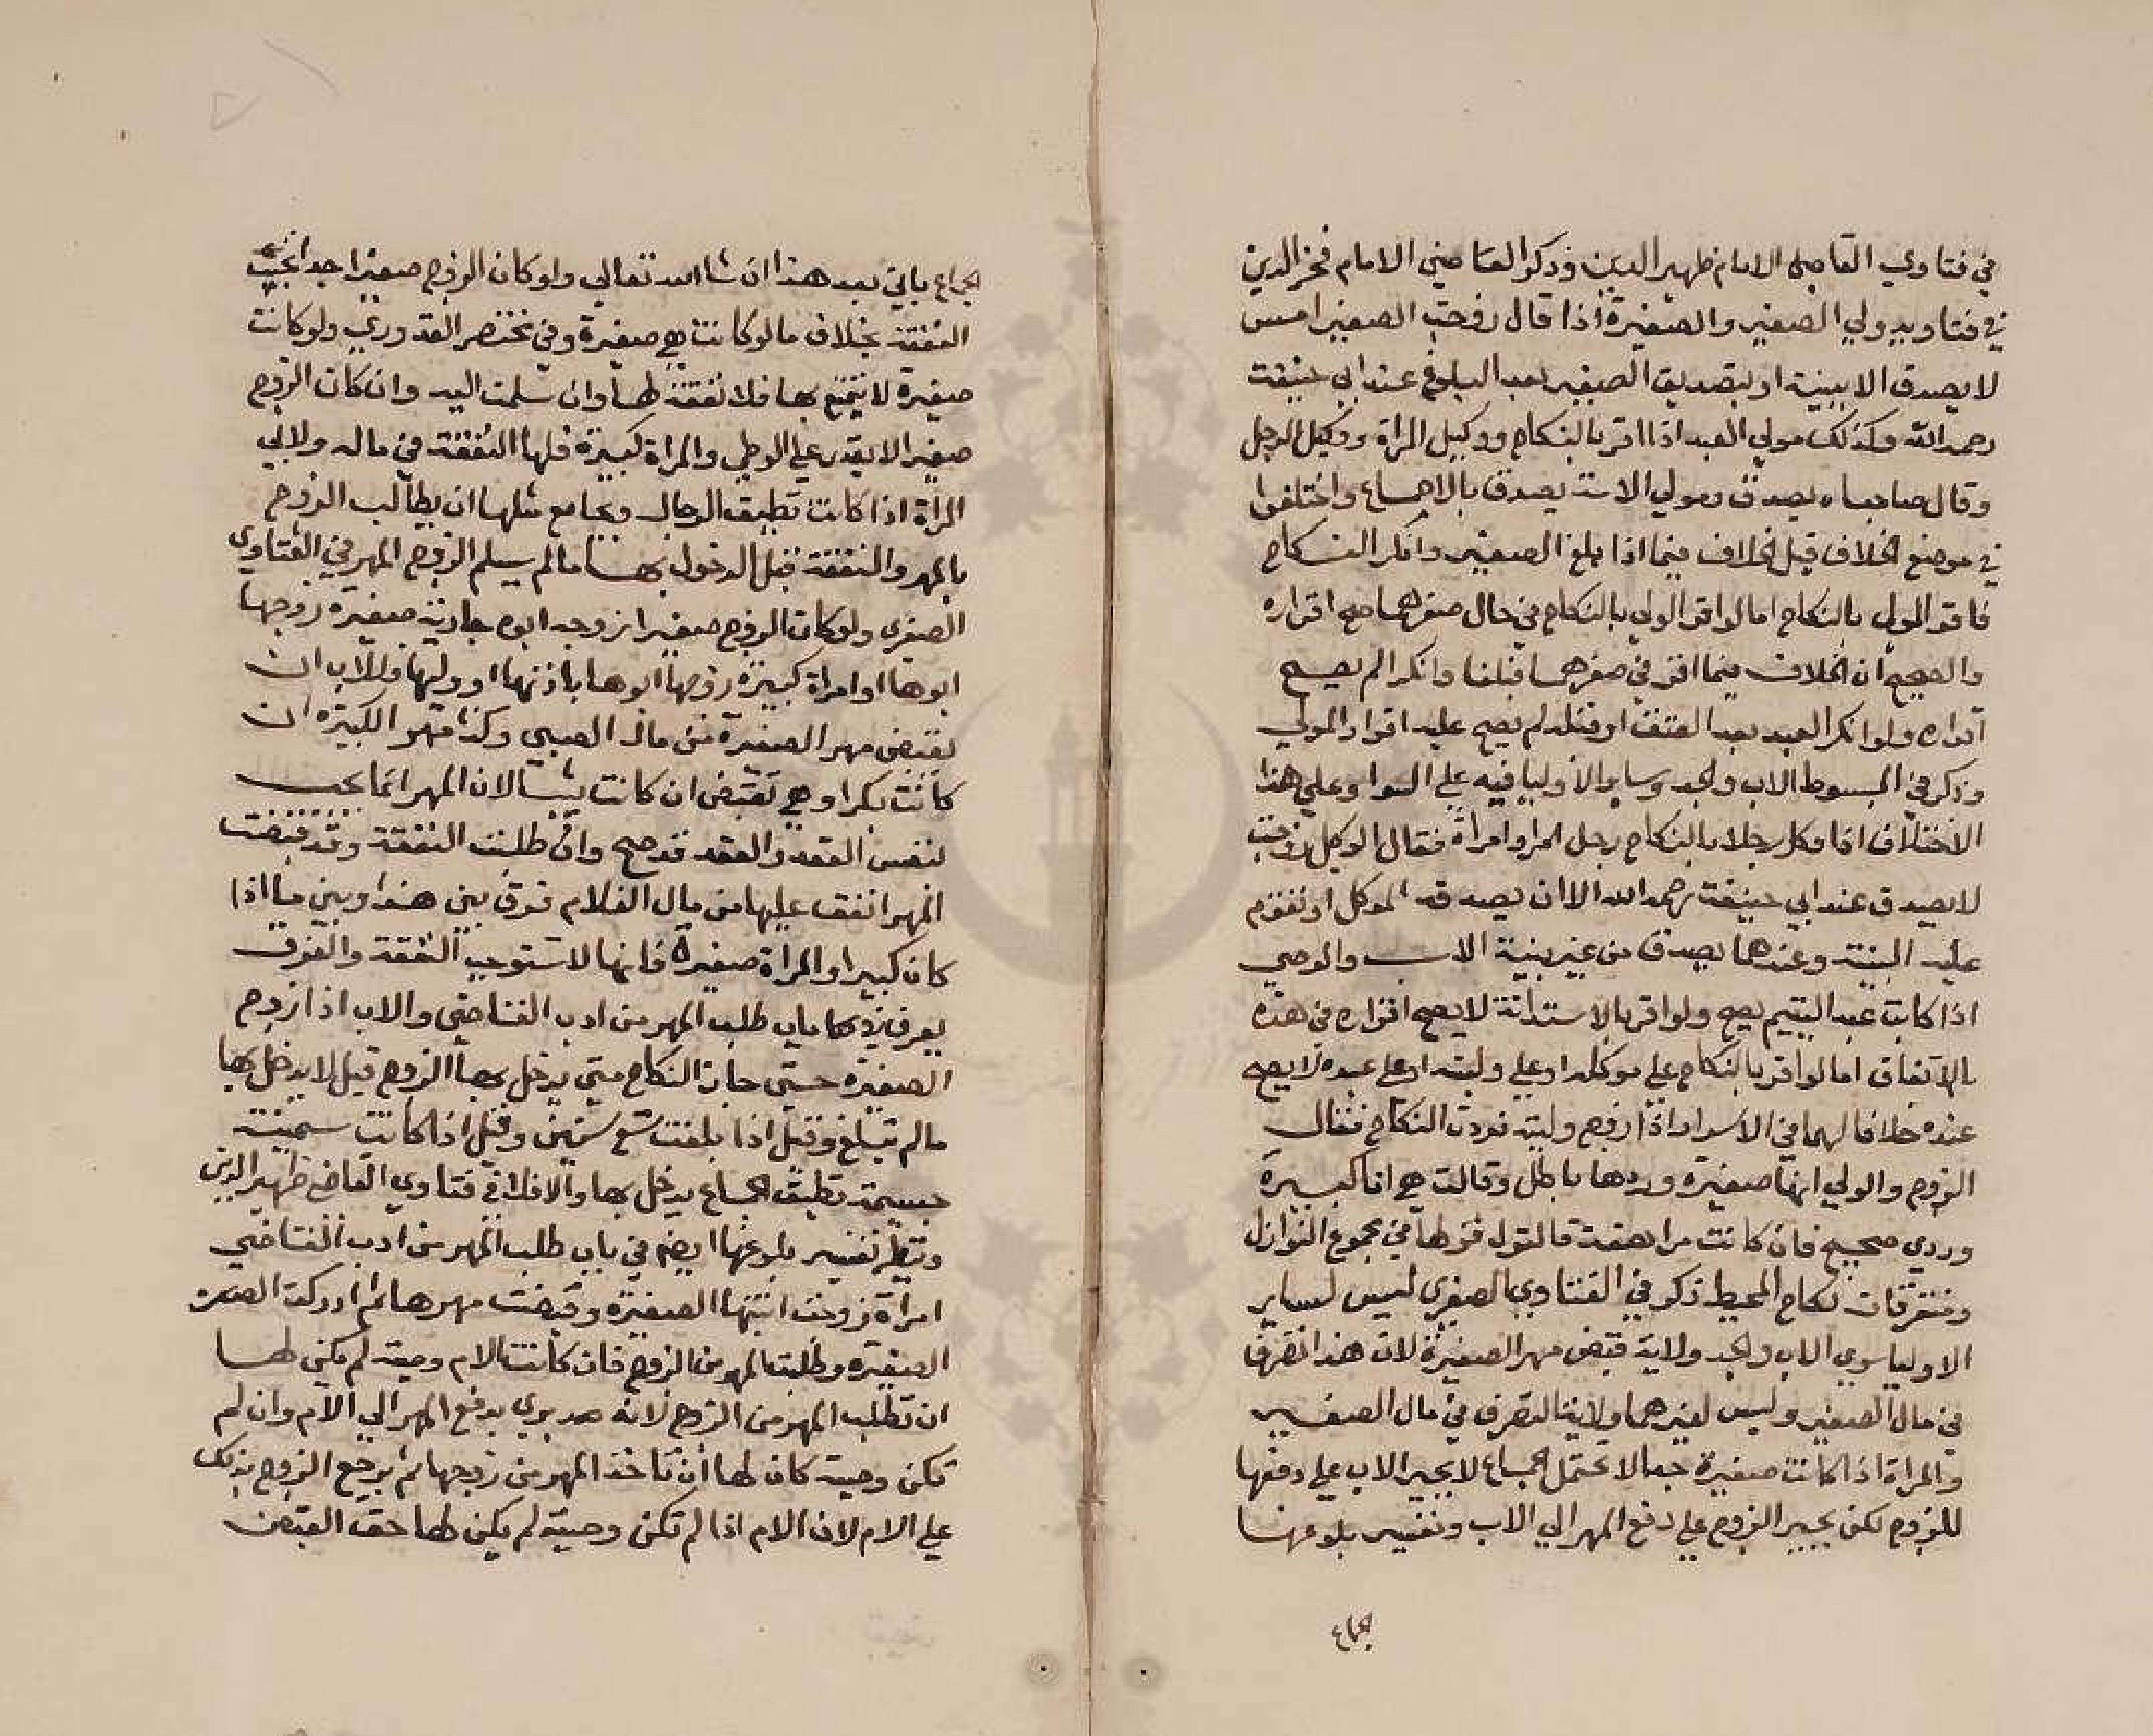 في فتاوي القاضي الامام ظهير الدين وذكر القاضي الامام فخر الدين
في فتاويه ولي الصغير والصغيرة اذا قال زوجت الصغير امس
لا يصدق الا ببينة او بتصديق الصغير بعد البلوغ عند ابي حنيفة
رحمه الله وكذلك مولي العبد اذا اقر بالنكاح ووكيل المراة ووكيل الرجل
وقال صاحباه يصدق ومولي الامة يصدق بالاجماع واختلفوا
في موضع الخلاف قيل الخلاف فيما اذا بلغ الصغير وانكر النكاح
فاقر الولي بالنكاح اما لو اقر الولي بالنكاح في حال صغرهما صح اقراره
والصحيح ان الخلاف فيما اقر في صغرهما فبلغا وانكرا لم يصح
اقراره ولو انكر العبد بعد العتق او قبله لم يصح عليه اقرار المولي
وذكر في المبسوط الاب والجد وساير الاوليا فيه علي السوا وعلي هذا
الاختلاف اذا وكل رجلا بالنكاح رجل امرا وامراة فقال الوكيل زوجت
لا يصدق عند ابي حنيفة رحمه الله الا ان يصدقه الموكل او تقوم
عليه البينة وعندهما يصدق من غير بينة الاب والوصي
اذا كاتب عبد اليتيم يصح ولو اقر بالاستدانة لا يصح اقراره في هذه
بالاتفاق اما لو اقر بالنكاح علي موكله او علي وليته او علي عبده لا يصح
عنده خلافا لهما في الاسرار اذا زوج وليته فردت النكاح فقال
الزوج والولي انها صغيرة وردها باطل وقالت هي انا كبيرة
وردي صحيح فان كانت مراهقة فالقول قولها في مجموع النوازل
ومتفرقات نكاح المحيط ذكر في الفتاوي الصغري ليس لساير
الاوليا سوي الاب والجد ولاية قبض مهر الصغيرة لان هذا تصرف
في مال الصغير وليس لغيرهما ولاية التصرف في مال الصغير
والمراة اذا كانت صغيرة جدا لا تحتمل الجماع لا يجبر الاب علي دفعها
للزوج لكن يجبر الزوج علي دفع المهر الي الاب وتفسير بلوغها
جماع
الجماع ياتي بعد هذا ان شا الله تعالي ولو كان الزوج صغيرا جدا تجب
النفقة بخلاف ما لو كانت هي صغيرة وفي مختصر القدوري ولو كانت
صغيرة لا يتمتع بها فلا نفقة لها وان سلمت اليه وان كان الزوج
صغيرا لا يقدر علي الوطي والمراة كبيرة فلها النفقة في ماله ولابي
المراة اذا كانت تطيق الرجال ويجامع مثلها ان يطالب الزوج
بالمهر والنفقة قبل الدخول بها ما لم يسلم الزوج المهر في الفتاوي
الصغري ولو كان الزوج صغيرا زوجه ابوه جارية صغيرة زوجها
ابوها او امراة كبيرة زوجها ابوها باذنها او وليها فللاب ان
يقبض مهر الصغيرة من مال الصبي وكذا مهر الكبيرة ان
كانت بكرا وهي تقبض ان كانت ثيبا لان المهر انما يجب
لنفس العقد والعقد قد صح وان طلبت النفقة وقد قبضت
المهر انفق عليها من مال الغلام فرق بين هذا وبين ما اذا
كان كبيرا والمراة صغيرة فانها لا تستوجب النفقة والفرق
يعرف في باب طلب المهر من ادب القاضي والاب اذا زوج
الصغيرة حتي جاز النكاح متي يدخل بها الزوج قيل لا يدخل بها
ما لم تبلغ وقيل اذا بلغت تسع سنين وقيل اذا كانت سمينة
جسيمة تطيق الجماع يدخل بها والا فلا في فتاوي القاضي ظهير الدين
وينظر تفسير بلوغها ايضا في باب طلب المهر من ادب القاضي
امراة زوجت ابنتها الصغيرة وقبضت مهرها ثم ادركت الصغيرة
الصغيرة وطلبت المهر من الزوج فان كانت الام وصية لم يكن لها
ان تطلب المهر من الزوج لانه قد بري بدفع المهر الي الام وان لم
تكن وصية كان لها ان تاخذ المهر من زوجها ثم يرجع الزوج بذلك
علي الام لان الام اذا لم تكن وصية لم يكن لها حق القبض